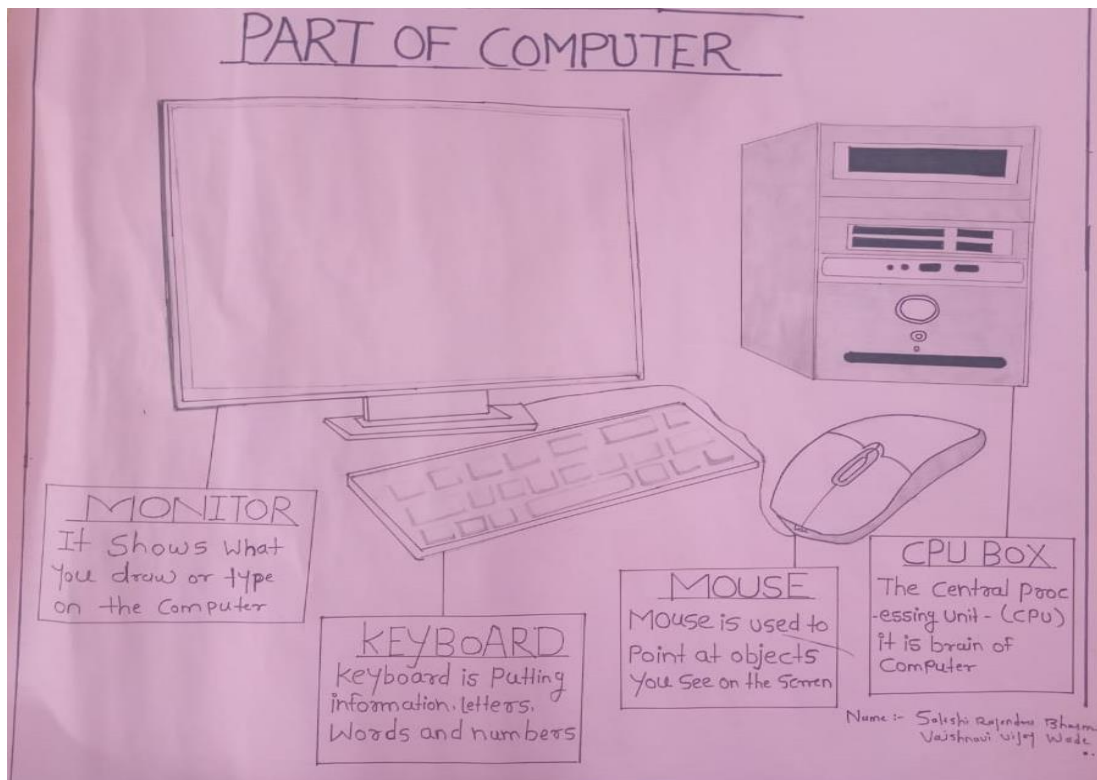 PART OF COMPUTER
MONITOR
It Shows what
you draw or type
on the Computer
KEYBOARD
Keyboard is Putting
information, letters,
Words and numbers
MOUSE
Mouse is used to
Point at objects
You See on the Screen
CPU BOX
The Central Proc
-essing Unit - (CPU)
it is brain of
Computer
Name :-
Vaishnavi Vijay Wade